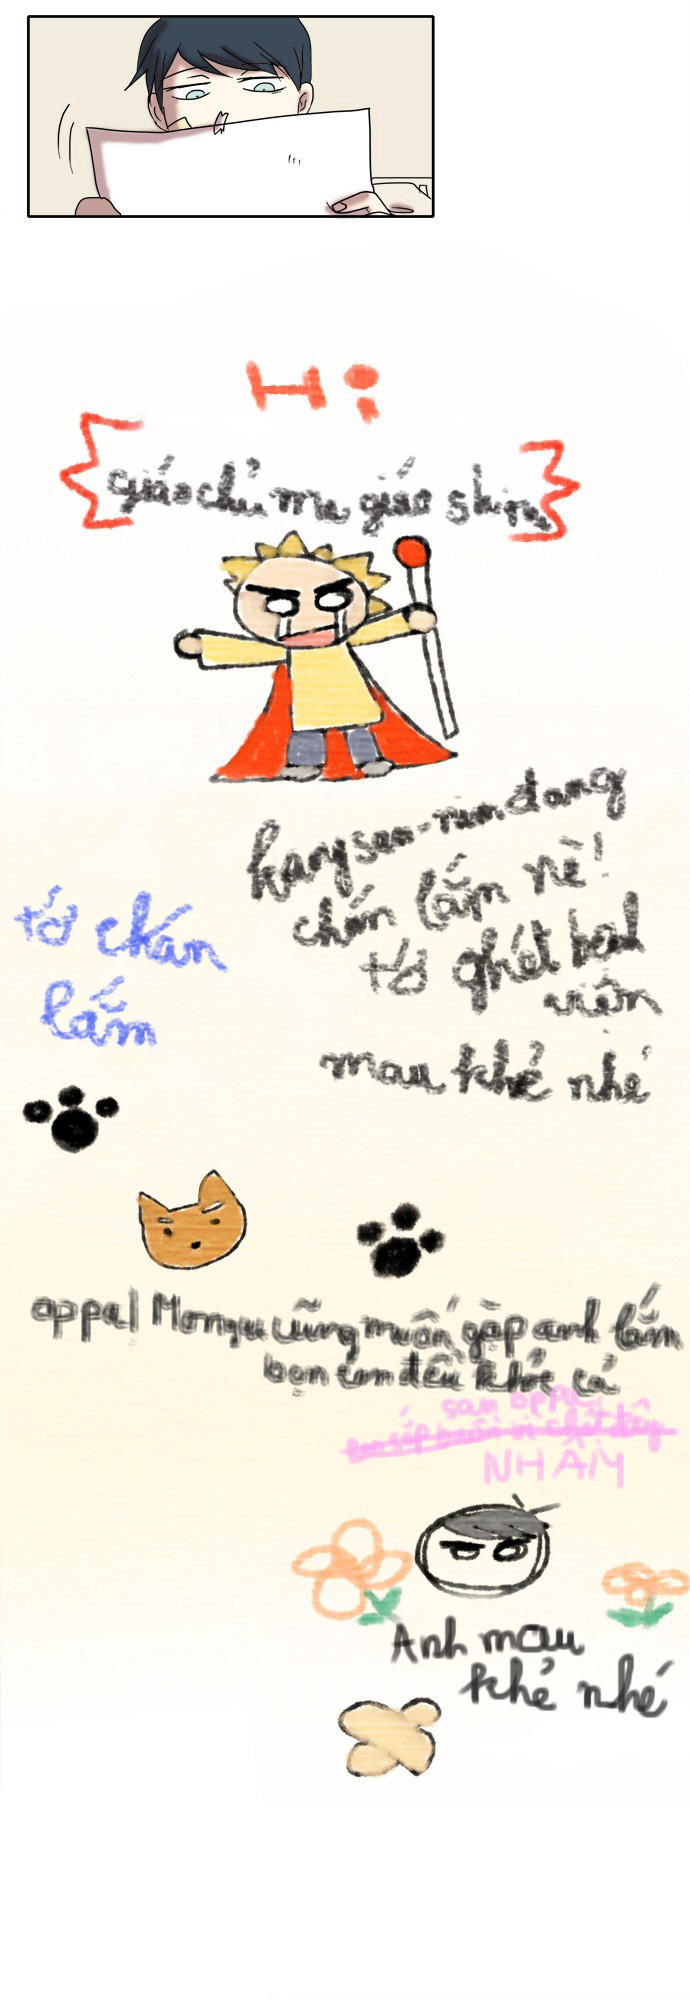 Hi
giáo chủ ma giáo shin
kangsan-nim đang
chán lắm nè!
tớ ghét bệnh
viện
tớ chán
lắm
mau khỏe nhé
oppa! Mongu cũng muốn gặp anh lắm
bọn em đều khỏe cả
san oppa
NHẦM
Anh mau
khỏe nhé